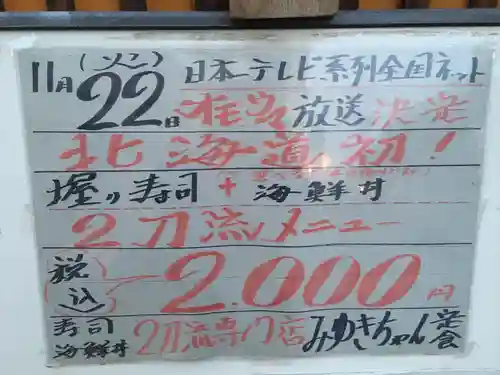 11月22日(火) 日本テレビ系列全国ネット
放送決定
北海道初!
握り寿司+海鮮丼
2刀流メニュー
税込 2.000円
寿司海鮮丼 2刀流専門店 みゆきちゃん定食